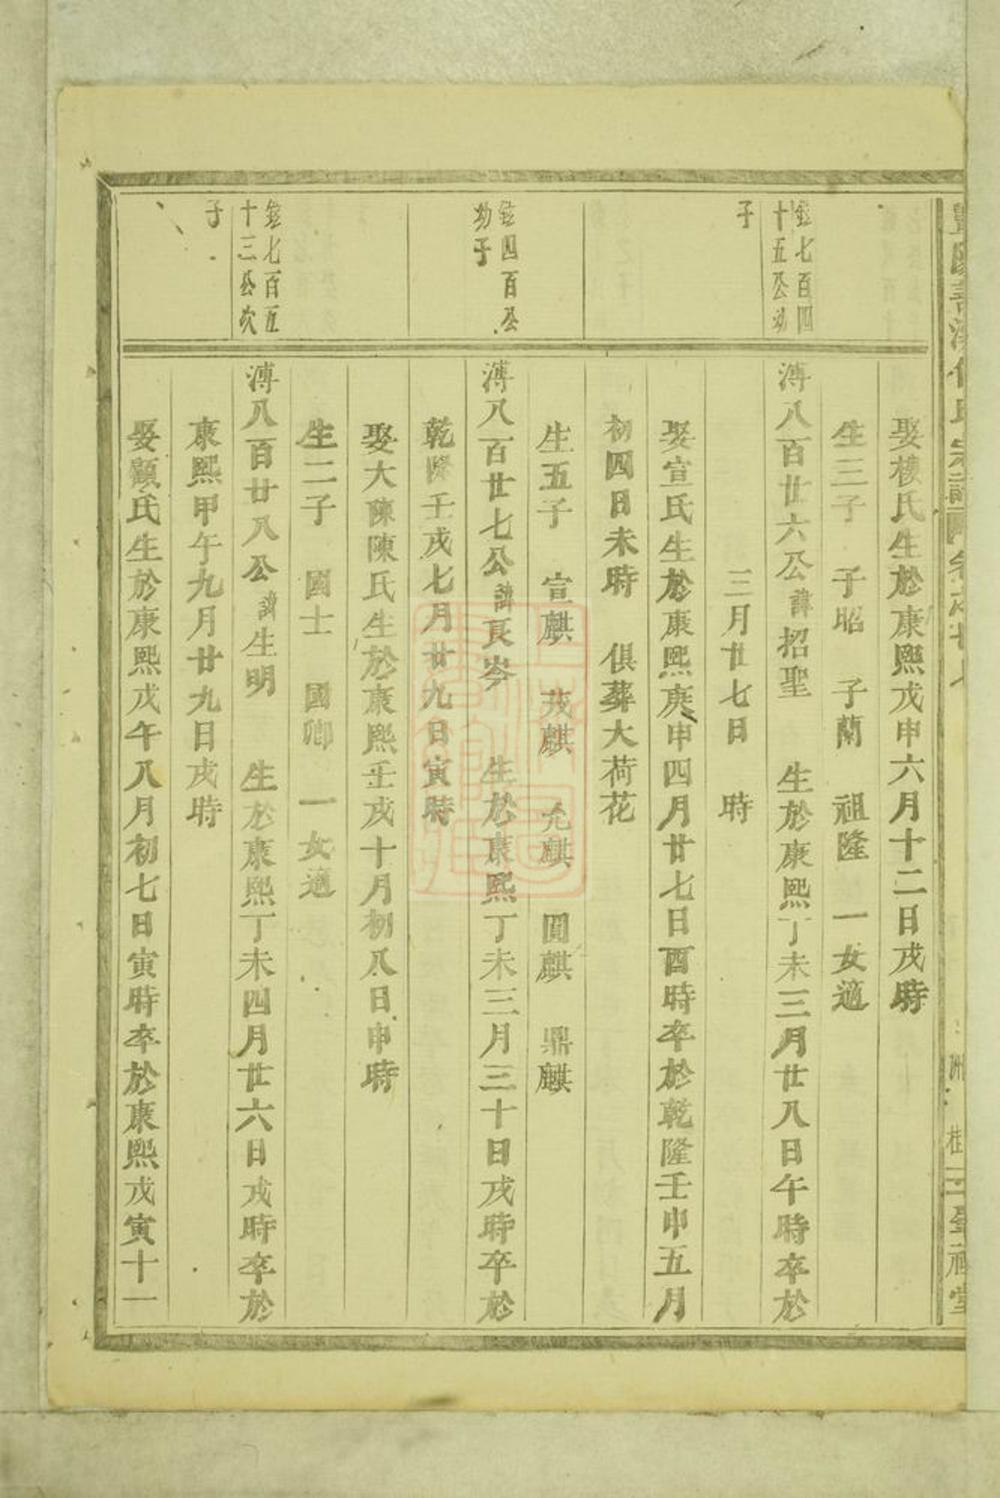 娶樓氏生於康熙戊申六月十二日戌時
生三子 子昭 子蘭 祖隆 一女適
鎡七百四
十五公幼
子
溥八百廿六公諱招聖 生於康熙丁未三月廿八日午時卒於
三月廿七日 時
娶宣氏生於康熙庚申四月廿七日酉時卒於乾隆壬申五月
初四日未時 俱葬大荷花
生五子 宣麒 茂麒 允麒 圓麒 鼎麒
四百公
幼子
溥八百廿七公諱良岑 生於康熙丁未三月三十日戌時卒於
乾隆壬戌七月廿九日寅時
娶大陳陳氏生於康熙壬戌十月初八日申時
生二子 國士 國卿 一女適
七百五
十三公次
子
溥八百廿八公諱生明 生於康熙丁未四月廿六日戌時卒於
康熙甲午九月廿九日戌時
娶顧氏生於康熙戊午八月初七日寅時卒於康熙戊寅十一